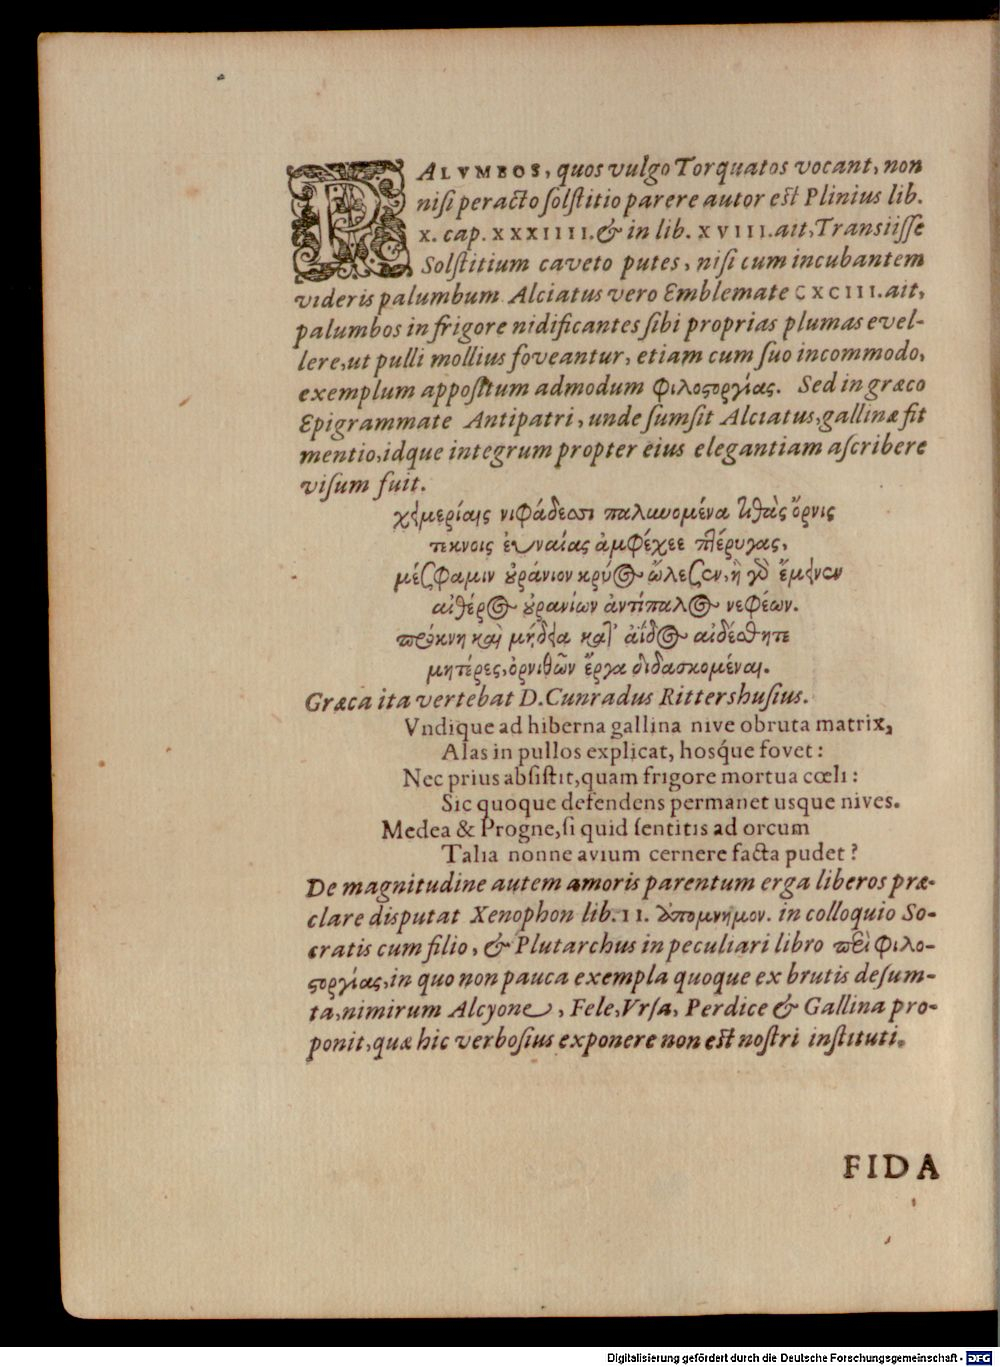 PALVMBOS, quos vulgo Torquatos vocant, non
nisi peracto solstitio parere autor est Plinius lib.
X. cap. XXXIIII. & in lib. XVIII. ait, Transiisse
Solstitium caveto putes, nisi cum incubantem
videris palumbum. Alciatus vero Emblemate CXCIII. ait,
palumbos in frigore nidificantes sibi proprias plumas evel-
lere, ut pulli mollius foveantur, etiam cum suo incommodo,
exemplum appositum admodum φιλοστοργίας. Sed in græco
Epigrammate Antipatri, unde sumsit Alciatus, gallinæ fit
mentio, idque integrum propter eius elegantiam ascribere
visum fuit.
χειμερίαις νιφάδεσσι παλυνομένα τιθὰς ὄρνις
τέκνοις εὐναίας ἀμφέχεε πτέρυγας,
μέσφα μιν οὐράνιον κρύος ὤλεσεν, ἦ γὸ ἔμεινεν
αἰθέρος οὐρανίων ἀντίπαλος νεφέων.
πρόκνη καὶ μήδεια κατ' ἄϊδος αἰδέσθητε
μητέρες, ὀρνίθων ἔργα διδασκομέναι.
Græca ita vertebat D. Cunradus Rittershusius.
Vndique ad hiberna gallina nive obruta matrix,
Alas in pullos explicat, hosq́ue fovet:
Nec prius absistit, quam frigore mortua cœli:
Sic quoque defendens permanet usque nives.
Medea & Progne, si quid sentitis ad orcum
Talia nonne avium cernere facta pudet?
De magnitudine autem amoris parentum erga liberos præ-
clare disputat Xenophon lib. II. ὑπομνημον. in colloquio So-
cratis cum filio, & Plutarchus in peculiari libro περὶ φιλο-
στοργίας, in quo non pauca exempla quoque ex brutis desum-
ta, nimirum Alcyone, Fele, Vrsa, Perdice & Gallina pro-
ponit, quæ hic verbosius exponere non est nostri instituti.
FIDA
Digitalisierung gefördert durch die Deutsche Forschungsgemeinschaft - DFG